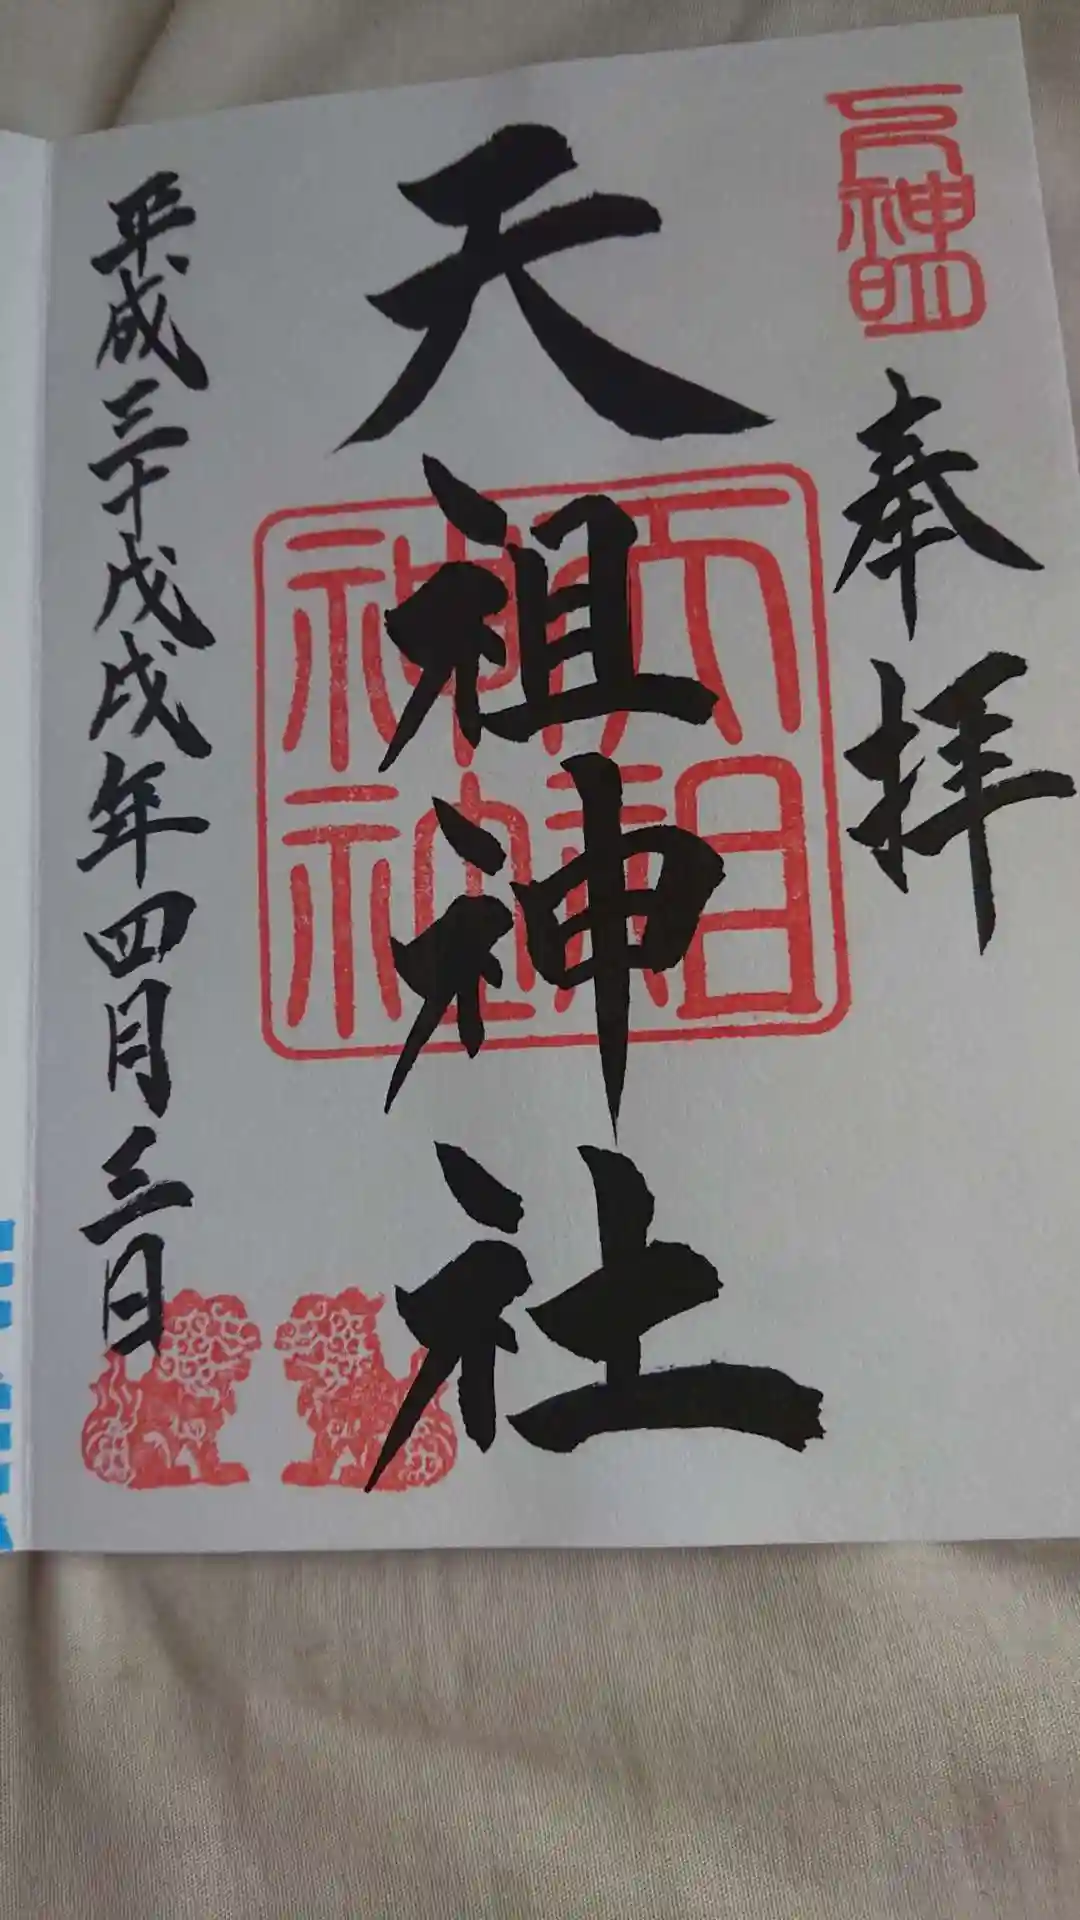 元神明
奉拝
天祖神社
天祖神社
平成三十戊戌年四月三日